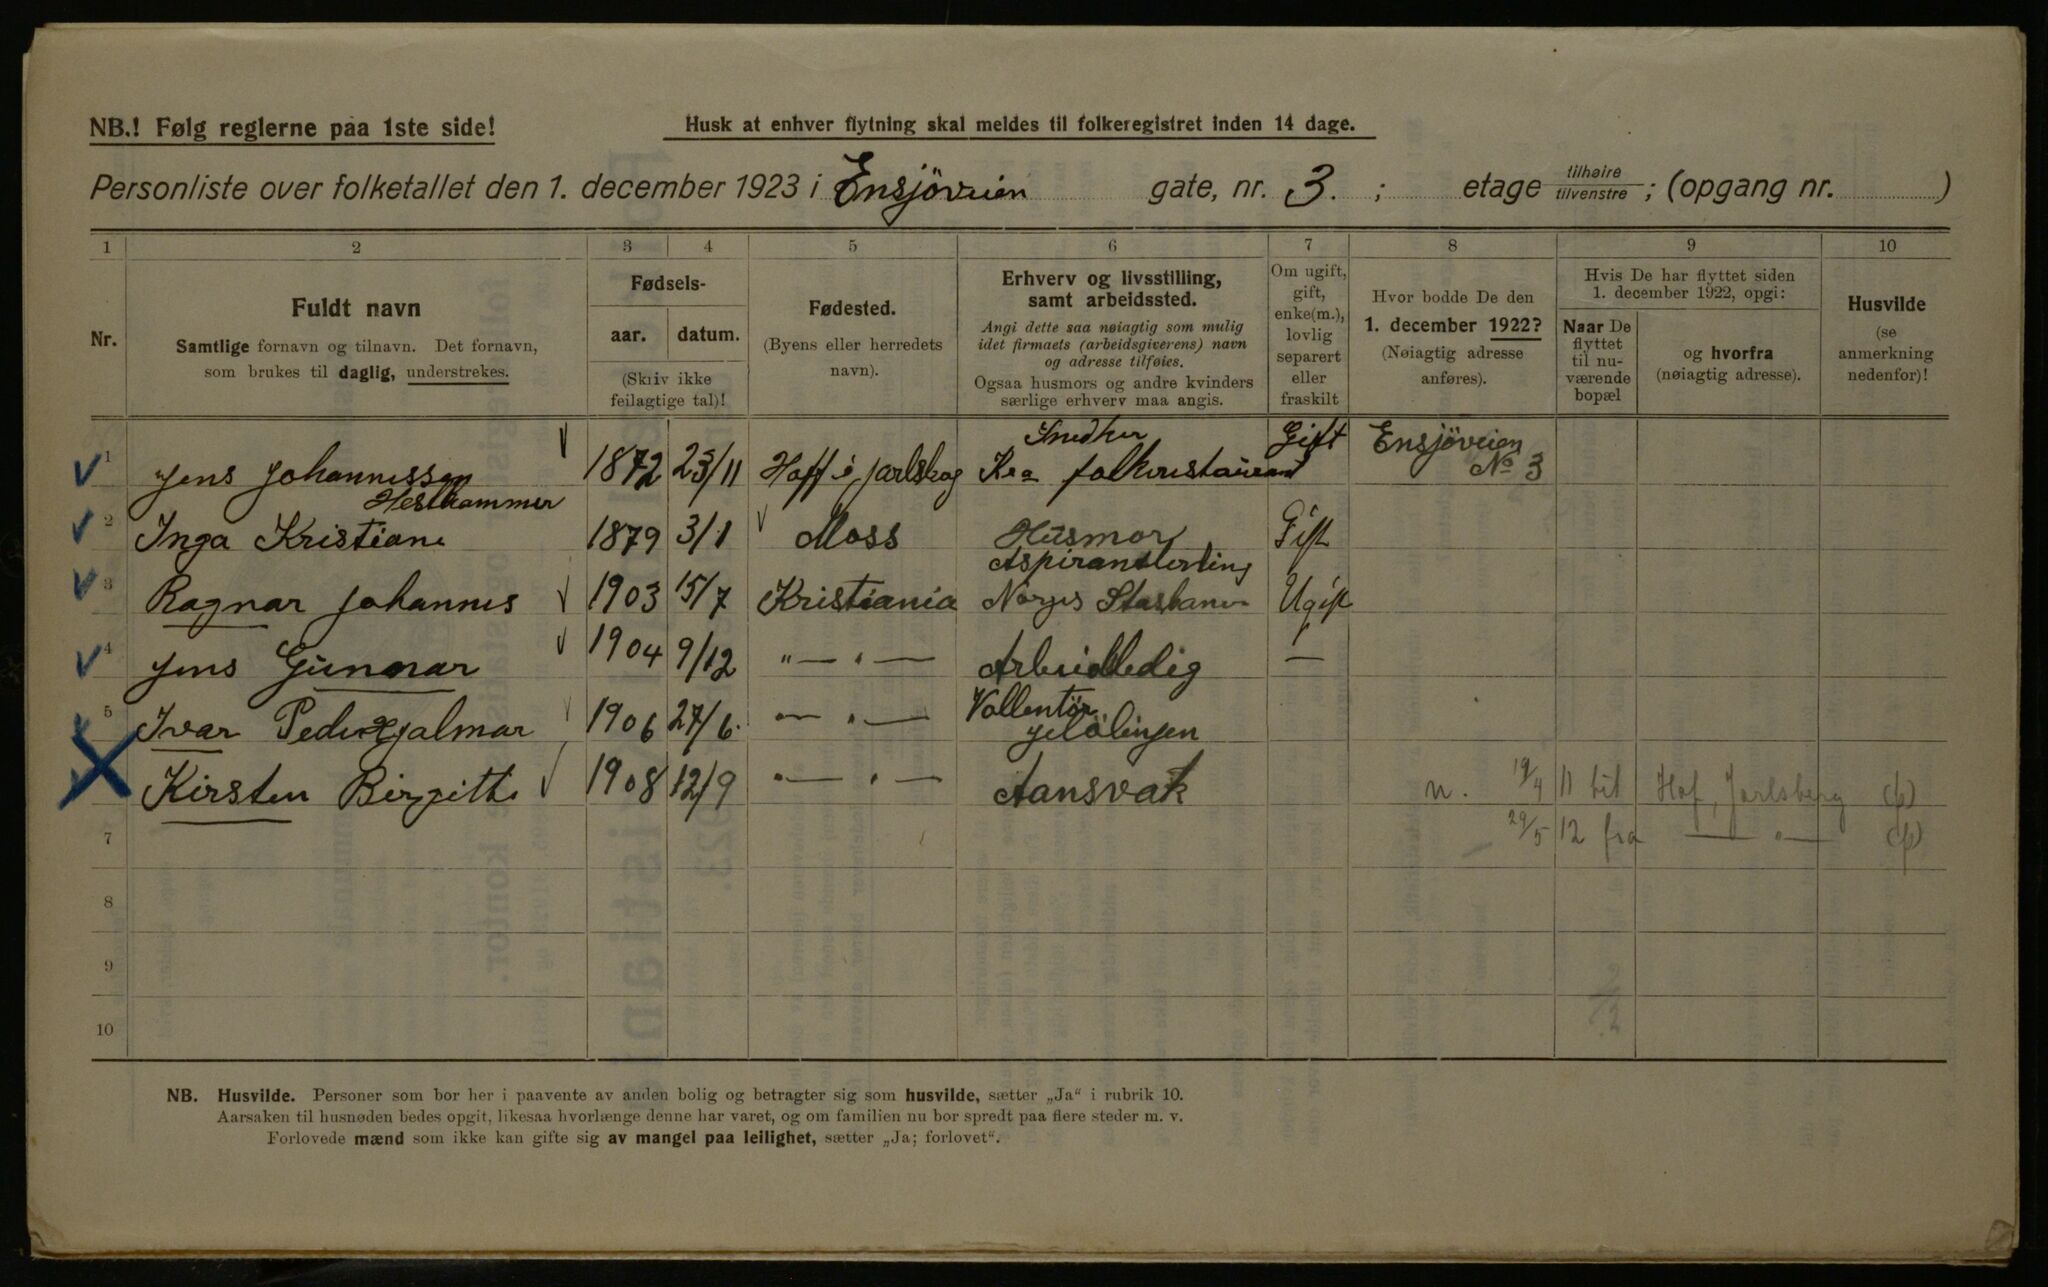 NB.! Følg reglerne paa 1ste side!
Husk at enhver flytning skal meldes til folkeregistret inden 14 dage.
Personliste over folketallet den 1. december 1923 i Ensjöveien gate, nr. 3. ; etage tilhøire tilvenstre ; (opgang nr. )
1 2 3 4 5 6 7 8 9 10
Nr.
Fuldt navn
Samtlige fornavn og tilnavn. Det fornavn,
som brukes til daglig, understrekes.
Fødsels-
aar. datum.
(Skriv ikke
feilagtige tal)!
Fødested.
(Byens eller herredets
navn).
Erhverv og livsstilling,
samt arbeidssted.
Angi dette saa nøiagtig som mulig
idet firmaets (arbeidsgiverens) navn
og adresse tilføies.
Ogsaa husmors og andre kvinders
særlige erhverv maa angis.
Om ugift,
gift,
enke(m.),
lovlig
separert
eller
fraskilt
Hvor bodde De den
1. december 1922?
(Nøiagtig adresse
anføres).
Hvis De har flyttet siden
1. december 1922, opgi:
Naar De
flyttet
til nu-
værende
bopæl
og hvorfra
(nøiagtig adresse).
Husvilde
(se
anmerkning
nedenfor)!
Snedker Gift Ensjöveien
1 Jens Johannessen 1872 23/11 Hoff i Jarlsberg Kra folkerestaurant No 3
Hesthammer
2 Inga Kristiane 1879 3/1 Moss Husmor Gift
Aspirantlerling
3 Ragnar Johannes 1903 15/7 Kristiania Norges Statsbaner Ugift
4 Jens Gunnar 1904 9/12 " — " — Arbeidledig —
5 Ivar Peder Hjalmar 1906 27/6. " — " — Vollentör
Kirsten Birgitte 1908 12/9 " — " — n. 19/4 11 til Hof, Jarlsberg (p)
7 29/5 12 fra — " — (p)
8
9
10
NB. Husvilde. Personer som bor her i paavente av anden bolig og betragter sig som husvilde, sætter „Ja“ i rubrik 10.
Aarsaken til husnøden bedes opgit, likesaa hvorlænge denne har varet, og om familien nu bor spredt paa flere steder m. v.
Forlovede mænd som ikke kan gifte sig av mangel paa leilighet, sætter „Ja; forlovet“.